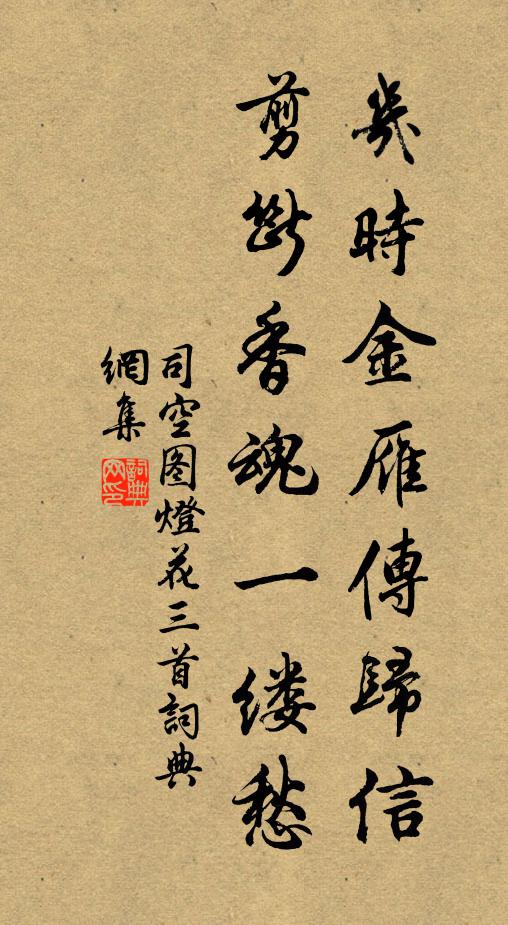 幾時金雁傳歸信
剪斷香魂一縷愁
司空图燈花三首詞典
網集
詞典网印